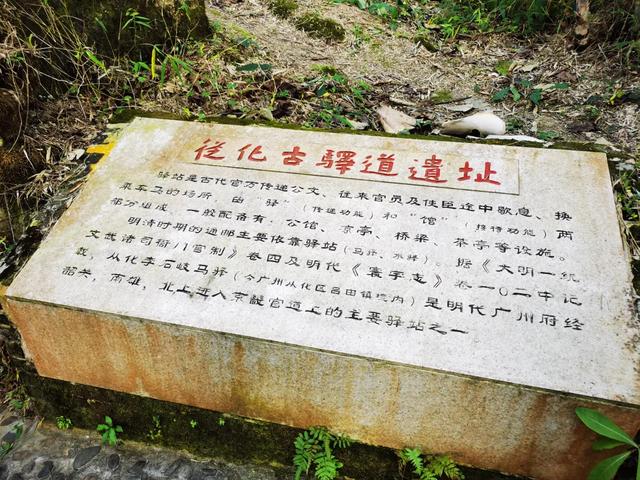 從化古驛道遺址
驿站是古代官方传递公文、往来官员及住臣途中歇息、换
乘车马的场所,由“驿”(传递功能)和“馆”(接待功能)两
部分组成,一般配备有:公馆、凉亭、桥梁、茶亭等设施。
明清时期的通邮主要依靠驿站(马驿、水驿)。据《大明一统
文武诸司衙门官制》卷四及明代《寰宇志》卷一〇二中记
载,从化李石岐马驿(今广州从化区吕田镇境内)是明代广州府经
韶关,南雄,北上进入京畿官道上的主要驿站之一